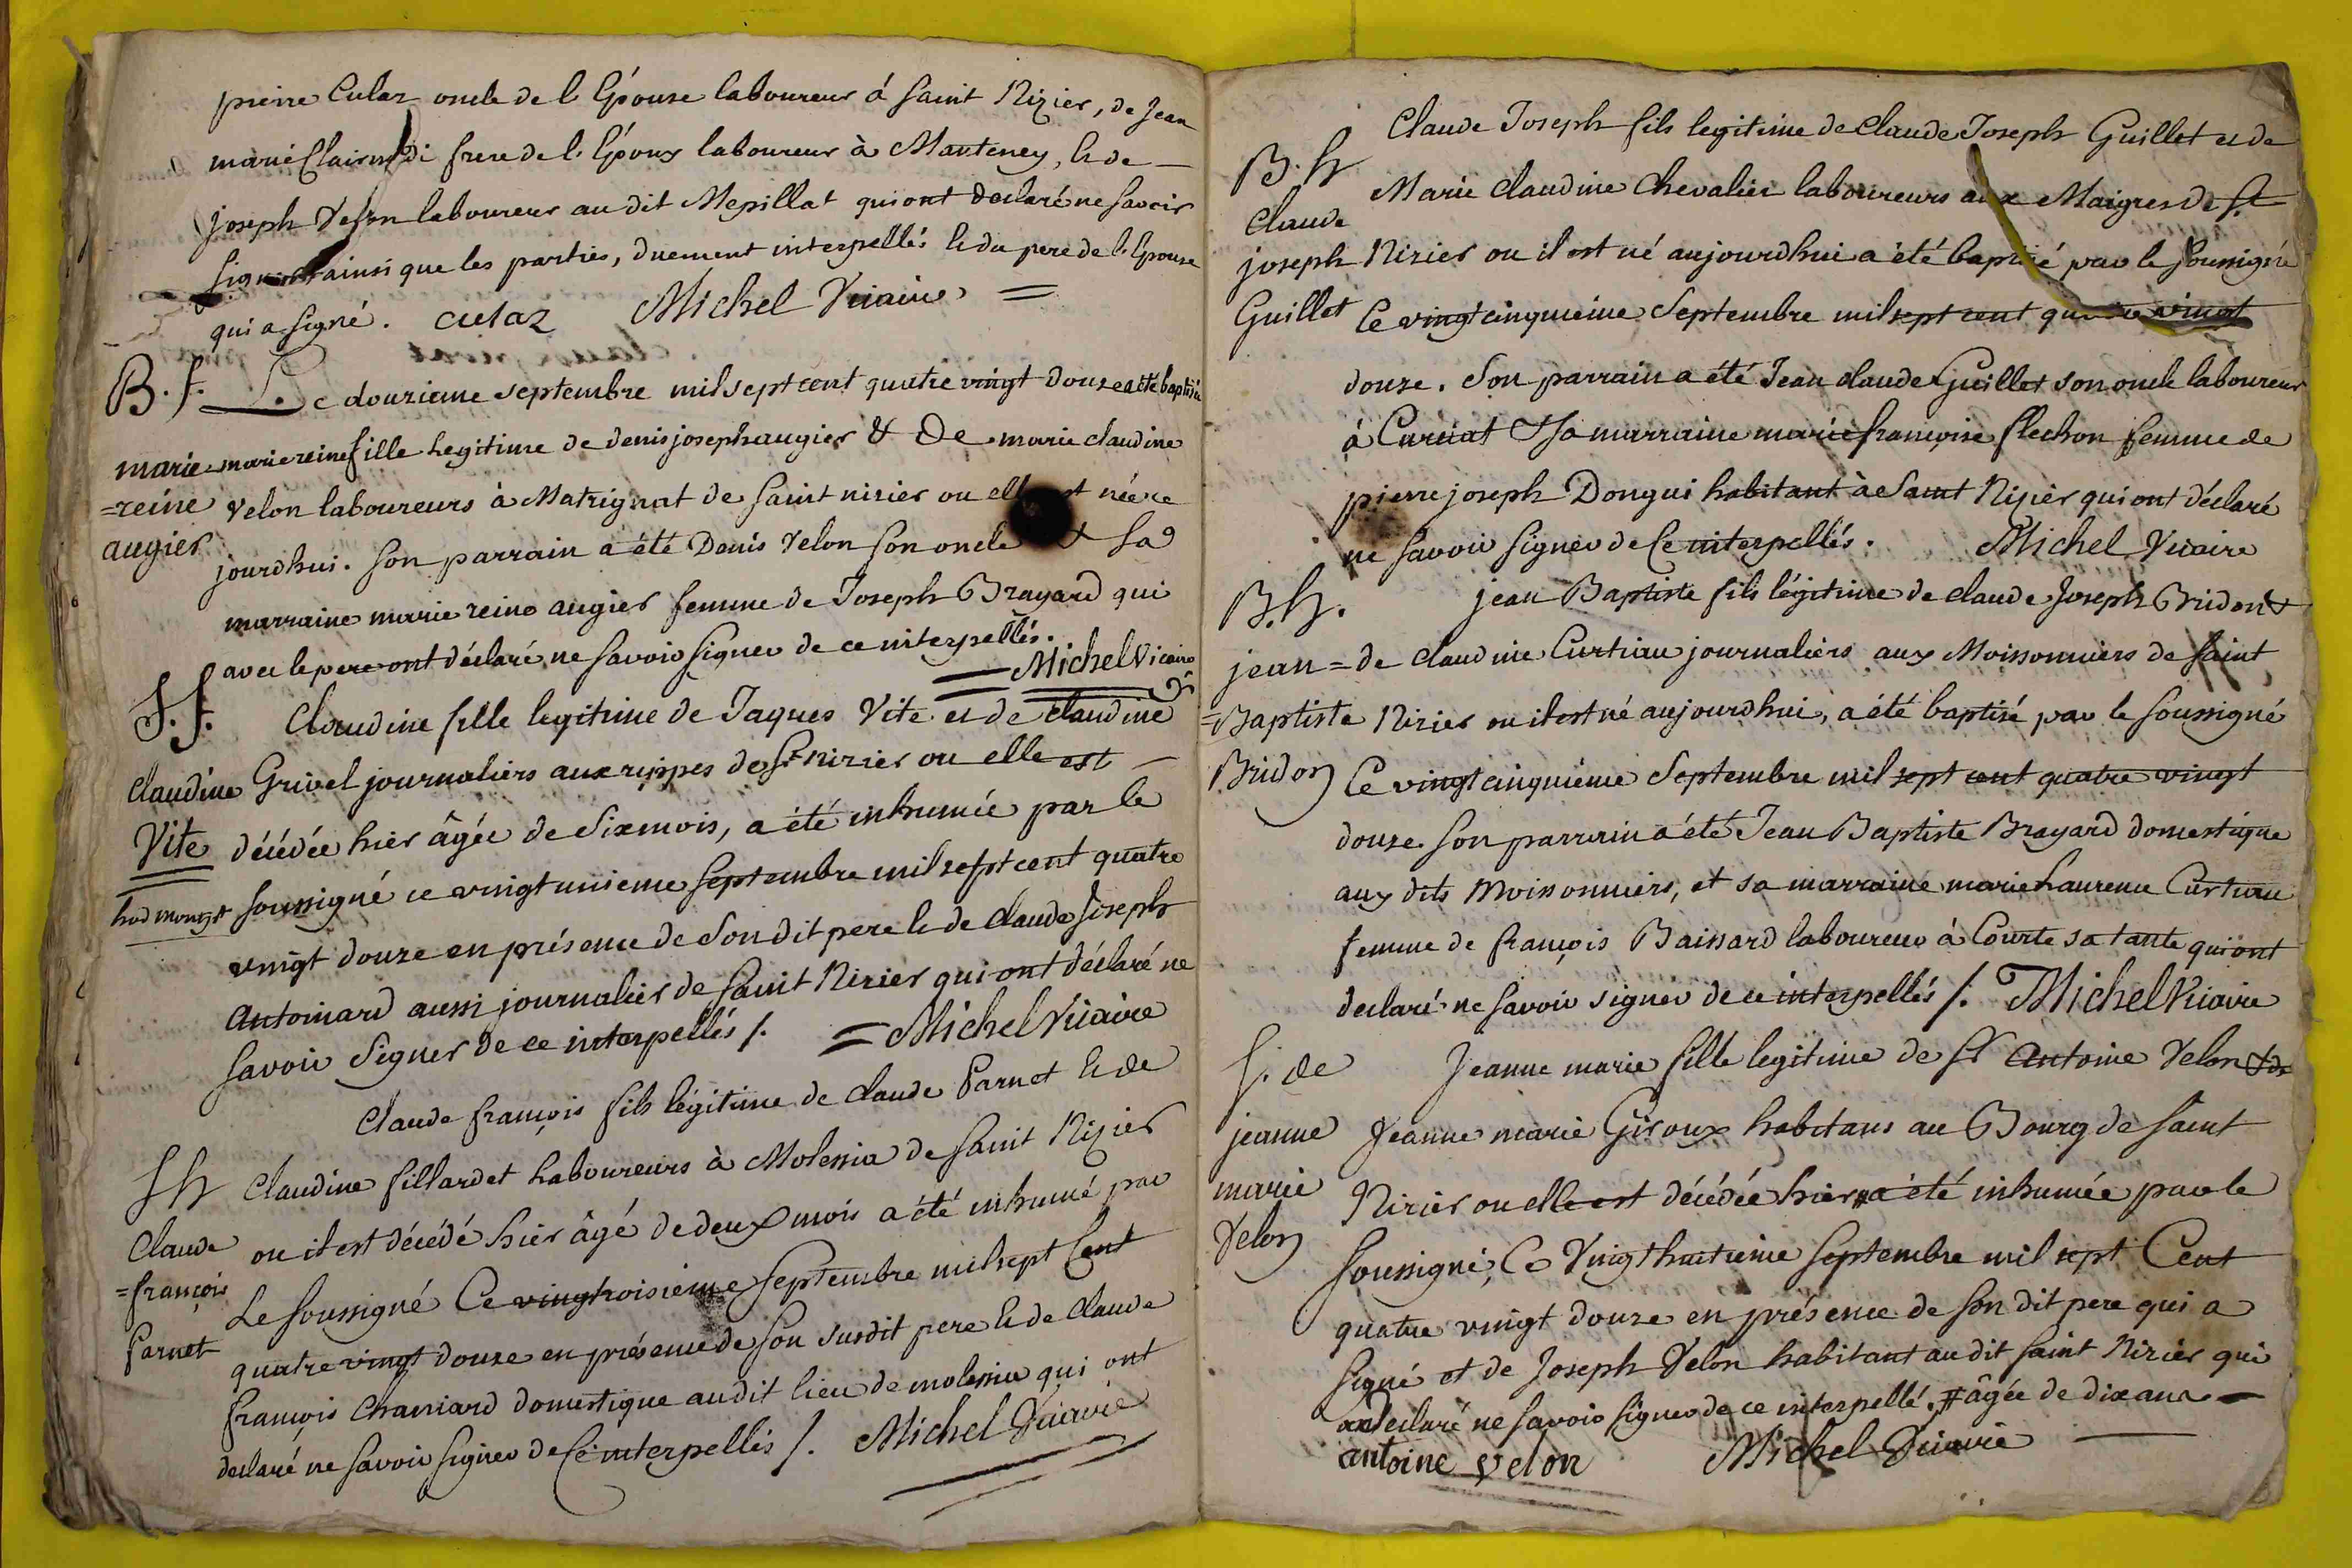 pierre Culaz oncle de l'Epouse laboureur á saint Nizier, de Jean
marie Clairmidi frere de l'Epoux laboureur à Manteney, & de
joseph Velon laboureur au dit Mepillat qui ont declaré ne savoir
signer ainsi que les parties, duement interpellés & du pere de l'Epouse
qui a signé. culaz Michel Vicaire =
B. f. Le douzieme septembre mil sept cent quatre vingt douze a été baptisée
marie marie reine fille legitime de denis joseph augier & De marie claudine
=reine velon laboureurs à Matrignat de saint nizier ou elle est née ce
augier jourdhui. son parrain a été Denis Velon son oncle & sa
marraine marie reine augier femme de Joseph Brayard qui
avec le pere ont déclaré ne savoir signer de ce interpellés.
= Michel Vicaire
S. f. Claudine fille legitime de Jaques Vite et de claudine
Claudine Grivel journaliers aux rippes de St nizier ou elle est
Vite décédée hier âgée de six mois, a été inhumée par le
soussigné ce vingt unieme septembre mil sept cent quatre
vingt douze en présence de son dit pere & de claude Joseph
Antoinard aussi journalier de saint Nizier qui ont déclaré ne
savoir signer de ce interpellés /. = Michel Vicaire
Claude françois fils légitime de claude Parnet & de
S h Claudine fillardet laboureurs à Molessia de saint Nizier
Claude ou il est décédé hier âgé de deux mois a été inhumé par
=françois Le soussigné Ce vingtroisieme septembre mil sept Cent
Parnet quatre vingt douze en présence de son susdit pere & de claude
françois Charriard domestique audit lieu de molessia qui ont
declaré ne savoir signer de Ce interpellés /. Michel Vicaire
Claude Joseph fils legitime de claude Joseph Guillet et de
B. h Marie claudine chevalier laboureurs aux Maigres de St
Claude
joseph Nizier ou il est né aujourdhui a été baptisé par le soussigné
Guillet Ce vingt cinquieme Septembre mil sept cent quatre vingt
douze. Son parrain a été Jean claude Guillet son oncle laboureur
á Curciat & sa marraine marie françoise flechon femme de
pierre joseph Dongui habitant à Saint Nizier qui ont déclaré
ne savoir signer de Ce interpellés. Michel Vicaire
B. h. jean Baptiste fils légitime de claude Joseph Bridon &
jean = de claudine Curtiau journaliers aux Moissonniers de saint
=Baptiste Nizier ou il est né aujourdhui, a été baptisé par le soussigné
Bridon Ce vingt cinquiéme Septembre mil sept cent quatre vingt
douze. son parrain a été Jean Baptiste Brayard domestique
aux dits Moissonniers, et sa marraine marie laurence Curtiau
femme de françois Baissard laboureur à Courte sa tante qui ont
declaré ne savoir signer de ce interpellés /. Michel Vicaire
S. de Jeanne marie fille legitime de Sr Antoine Velon & de
jeanne Jeanne marie Giroux habitans au Bourg de saint
marie Nizier ou elle est décédée hier # a été inhumée par le
Velon soussigné, Ce Vingt huitieme septembre mil sept Cent
quatre vingt douze en présence de son dit pere qui a
signé et de Joseph Velon habitant au dit saint Nizier qui
a declaré ne savoir signer de ce interpellé. # âgée de dix ans
antoine velon Michel Vicaire